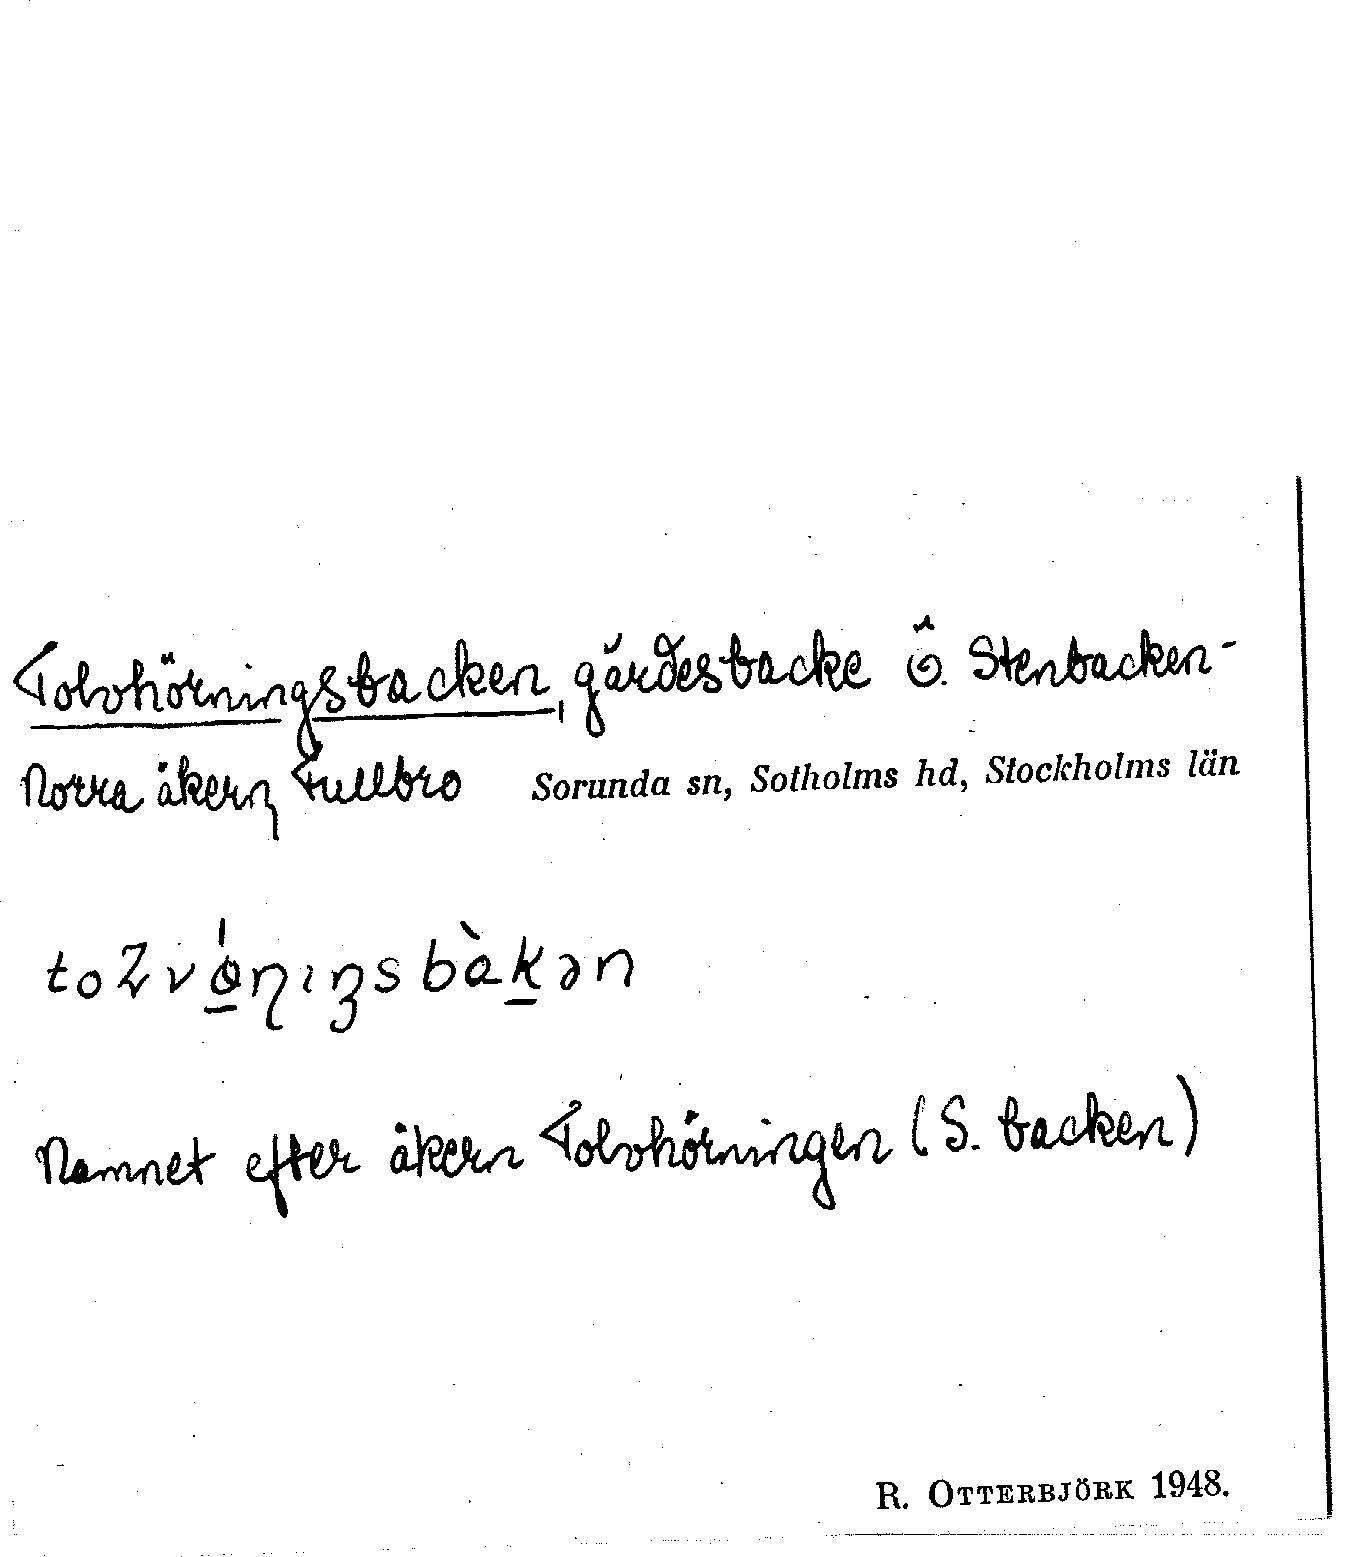 Tolvhörningsbacken, gärdesbacke Ö. Stenbacken-
Norra åkern, Fullbro Sorunda sn, Sotholms hd, Stockholms län
Namnet efter åkern Tolvhörningen (S. backen)
R. OTTERBJÖRK 1948.